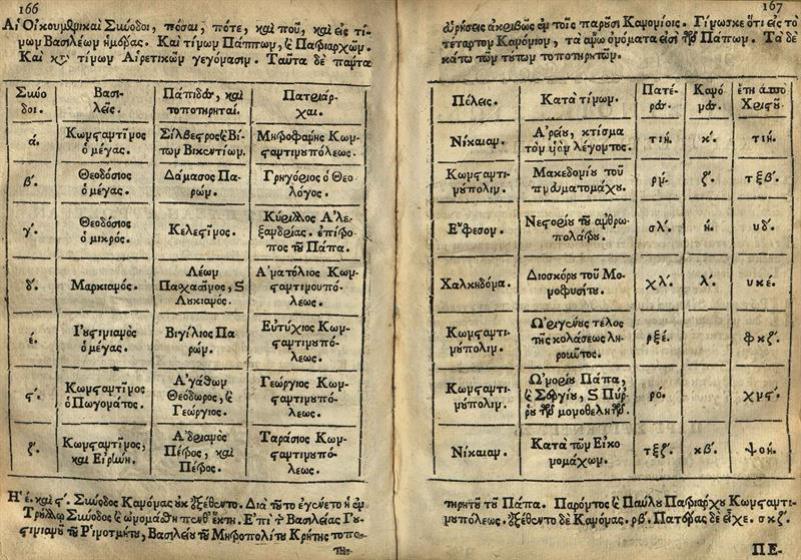 166
Αἱ Οἰκουμενικαὶ Σύνοδοι, πόσαι, πότε, καὶ ποῦ, καὶ εἰς τί-
νων Βασιλέων ἡμέρας. Καὶ τίνων Πάππων, ϗ Πατριαρχῶν.
Καὶ κτ τίνων Αἱρετικῶν γεγόνασιν. Ταῦτα δὲ πάντα
Σύνο
δοι.
Βασι-
λεῖς.
Πάπιδων, καὶ
τοποτηρηταί.
Πατριάρ-
χαι.
ά.
Κωνσαντῖνος
ὁ μέγας.
Σίλβεστρος ϗ Βί-
των Βικεντίων.
Μητροφάνης Κων-
σαντινουπόλεως.
β'.
Θεοδόσιος
ὁ μέγας.
Δάμασος Πα-
ρών.
Γρηγόριος ὁ Θεο
λόγος.
γ'.
Θεοδόσιος
ὁ μικρός.
Κελεστῖνος.
Κύριλλος Ἀλε-
ξανδρίας. ἐπίτρο-
πος τοῦ Πάπα.
δ'.
Μαρκιανός.
Λέων
Πασχασῖνος, ϗ
Λυκιανός.
Ἀνατόλιος Κων-
σαντινουπό-
λεως.
έ.
Ἰουστινιανὸς
ὁ μέγας.
Βιγίλιος Πα
ρών.
Εὐτύχιος Κων-
σαντινουπό-
λεως.
ς'.
Κωνσαντῖνος
ὁ Πωγονάτος.
Ἀγάθων
Θεόδωρος, ϗ
Γεώργιος.
Γεώργιος Κων-
σαντινουπό-
λεως.
ζ'.
Κωνσαντῖνος,
καὶ Εἰρήνη.
Ἀδριανὸς
Πέτρος, καὶ
Πέτρος.
Ταράσιος Κων-
σαντινουπό-
λεως.
Ἡ έ. καὶ ς'. Σύνοδος Κανόνας οὐκ ἐξέθεντο. Διὰ τοῦτο ἐγένετο ἡ ἐν
Τρούλλῳ Σύνοδος ϗ ὠνομάσθη πενθέκτη. Ἐπὶ τ Βασιλείας Ἰου-
στινιανοῦ τοῦ Ῥινοτμήτου, Βασιλείου τοῦ Μητροπολίτου Κρήτης τοπο-
τη-
167
εὑρήσεις ἀκριβῶς ἐν τοῖς παροῦσι Κανονίοις. Γίνωσκε ὅτι εἰς τὸ
τέταρτον Κανόνιον, τὰ ἄνω ὀνόματα εἰσὶ τῶν Πάπων. Τὰ δὲ
κάτω τῶν τούτων τοποτηρητῶν.
Πόλεις.
Κατὰ τίνων.
Πατέ-
ρων.
Κανό-
νων.
ἔτη ἀπὸ
Χριστοῦ.
Νίκαιαν.
Ἀρείου, κτίσμα
τὸν υἱὸν λέγοντος.
τιή.
κ'.
τιή.
Κωνσαντι-
νούπολιν.
Μακεδονίου τοῦ
πνευματομάχου.
ρν'.
ζ'.
τξβ'.
Ἔφεσον.
Νεστορίου τοῦ ἀνθρω-
πολάτρου.
σλ'.
ή.
υδ'.
Χαλκηδόνα.
Διοσκόρου τοῦ Μο-
νοφυσίτου.
χλ'.
λ'.
υκέ.
Κωνσαντι-
νούπολιν.
Ὠριγένους τέλος
τῆς κολάσεως λη-
ροῦντος.
ρξέ.
φκζ'.
Κωνσαντι-
νούπολιν.
Ὠνορίου Πάπα,
ϗ Σεργίου, ϗ Πύρ-
ρου τῶν μονοθελητῶν.
ρό.
χνς'.
Νίκαιαν.
Κατὰ τῶν Εἰκο
νομάχων.
τξζ'.
κβ'.
ψοή.
τηρητοῦ τοῦ Πάπα. Παρόντος ϗ Παύλου Πατριάρχου Κωνσαντι-
νουπόλεως. ἐξέθεντο δὲ Κανόνας. ρβ'. Πατέρας δὲ εἶχε. σκζ'.
ΠΕ-